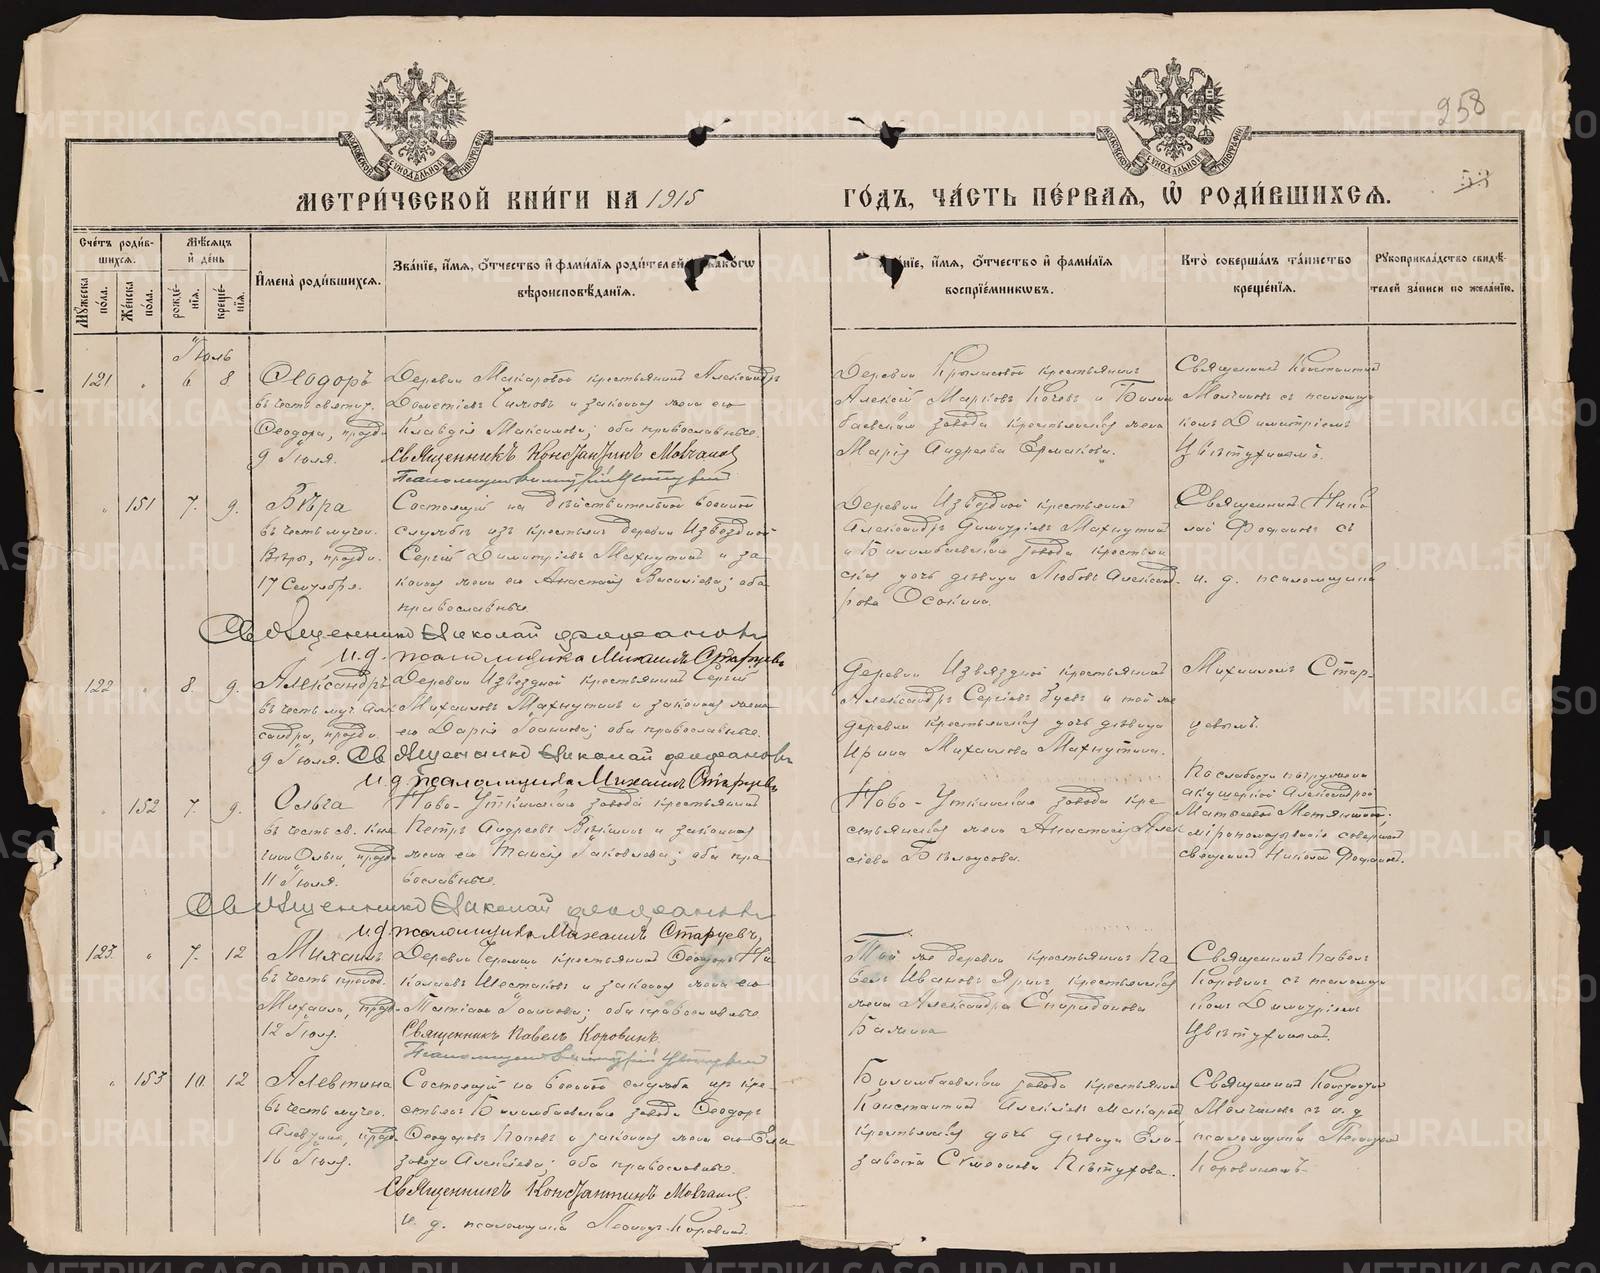 958
МОСКОВСКОЙ СѴНОДАЛЬНОЙ ТИПОГРАФІИ
МОСКОВСКОЙ СѴНОДАЛЬНОЙ ТИПОГРАФІИ
МЕТРИ́ЧЕСКОЙ КНИ́ГИ НА 1915 ГО́ДЪ, ЧА́СТЬ ПЕ́РВАЯ, Ѽ РОДИ́ВШИХСЯ.
Сче́тъ роди́в-
шихся.
Мꙋ́жеска пола.
Же́нска пола.
Мѣ́сяцъ
и́ де́нь
рожде́нїя.
креще́нїя.
И҆мена̀ роди́вшихся.
Зва́нїе, и҆́мя, ѻ҆́тчество и҆ фами́лїя роди́телей
вѣроисповѣ́данїя.
и҆́мя, ѻ҆́тчество и҆ фами́лїя
воспрїе́мниковъ.
Кто̀ соверша́лъ та́инство
креще́нїя.
Рꙋкоприкла́дство свидѣ́-
телей за́писи по жела́нїю.
Іюль
121 " 6 8
Ѳеодоръ
въ честь святит.
Ѳеодора, празд.
9 Іюля.
Деревни Макаровой крестьянинъ Александръ
и законная жена его
Клавдія Максимова; оба православные.
Священникъ Константинъ Молчановъ
Деревни Крыласовой крестьянинъ
Алексій Марковъ и Билим
баевскаго завода крестьянская жена
Марія Андреева Ермакова.
Священникъ Константинъ
Молчановъ съ псаломщи
комъ Димитріемъ
Цвѣтухинымъ.
" 151 7. 9.
Вѣра
въ честь мучен.
Вѣры, празд.
17 Сентября.
Состоящій на дѣйствительной военной
службѣ изъ крестьянъ деревни Извѣздной
Сергѣй Димитріевъ Махнутинъ и за-
конная жена его Анастасія Василіева; оба
православные.
Священникъ Николай Фофановъ
и. д. псаломщика Михаилъ Старцевъ
Деревни Извѣздной крестьянинъ
Александръ Димитріевъ Махнутинъ
и Билимбаевскаго завода крестьян
ская дочь дѣвица Любовь Александ-
рова Осокина.
Священникъ Нико
лай Фофановъ съ
и. д. псаломщика
122 " 8. 9.
Александръ
въ честь муч. Алек
сандра, празд.
9 Іюля.
Деревни Извѣздной крестьянинъ Сергѣй
Михаиловъ Махнутинъ и законная жена
его Дарія Іоаннова; оба православные.
Священникъ Николай Фофановъ
и. д. псаломщика Михаилъ Старцевъ
Деревни Извѣздной крестьянинъ
Александръ Сергѣевъ Зуевъ и той же
деревни крестьянская дочь дѣвица
Ирина Михаилова Махнутина.
Михаиломъ Стар-
цевымъ.
" 152 7. 9.
Ольга
въ честь св. кня
гини Ольги, празд.
11 Іюля.
Ново-Уткинскаго завода крестьянинъ
Петръ Андреевъ и законная
жена его Таисія Іаковлева; оба пра
вославные.
Священникъ Николай Фофановъ
и. д. псаломщика Михаилъ Старцевъ
Ново-Уткинскаго завода кре
стьянская жена Анастасія Алек
сіева Бѣлоусова.
По слабости погружена
акушеркой Александрой
Матвеевой
мѵропомазаніе совершалъ
священникъ Николай Фофановъ.
123 " 7. 12
Михаилъ
въ честь препод.
Михаила, празд.
12 Іюля.
Деревни крестьянинъ Ѳеодоръ Ни
колаевъ Шестаковъ и законная жена его
Татіана Іоаннова; оба православные
Священникъ Павелъ Коровинъ.
Той же деревни крестьянинъ Па
велъ Ивановъ крестьянская
жена Александра Спиридонова
Священникъ Павелъ
Коровинъ съ псаломщи
комъ Димитріемъ
Цвѣтухинымъ.
" 153 10. 12
Алевтина
въ честь мучен.
Алевтины, празд.
16 Іюля.
Состоящій на военной службѣ изъ кре-
стьянъ Билимбаевскаго завода Ѳеодоръ
Ѳеодоровъ Поповъ и законная жена его Ели
завета Алексіева; оба православные.
Священникъ Константинъ Молчановъ.
и. д. псаломщика Леонидъ Коровинъ.
Билимбаевскаго завода крестьянинъ
Константинъ Алексіевъ Макаровъ
крестьянская дочь дѣвица Ели-
завета Симеонова Пѣтухова.
Священникъ Константинъ
Молчановъ съ и. д.
псаломщика Леонидомъ
Коровинымъ
METRIKI.GASO-URAL.RU